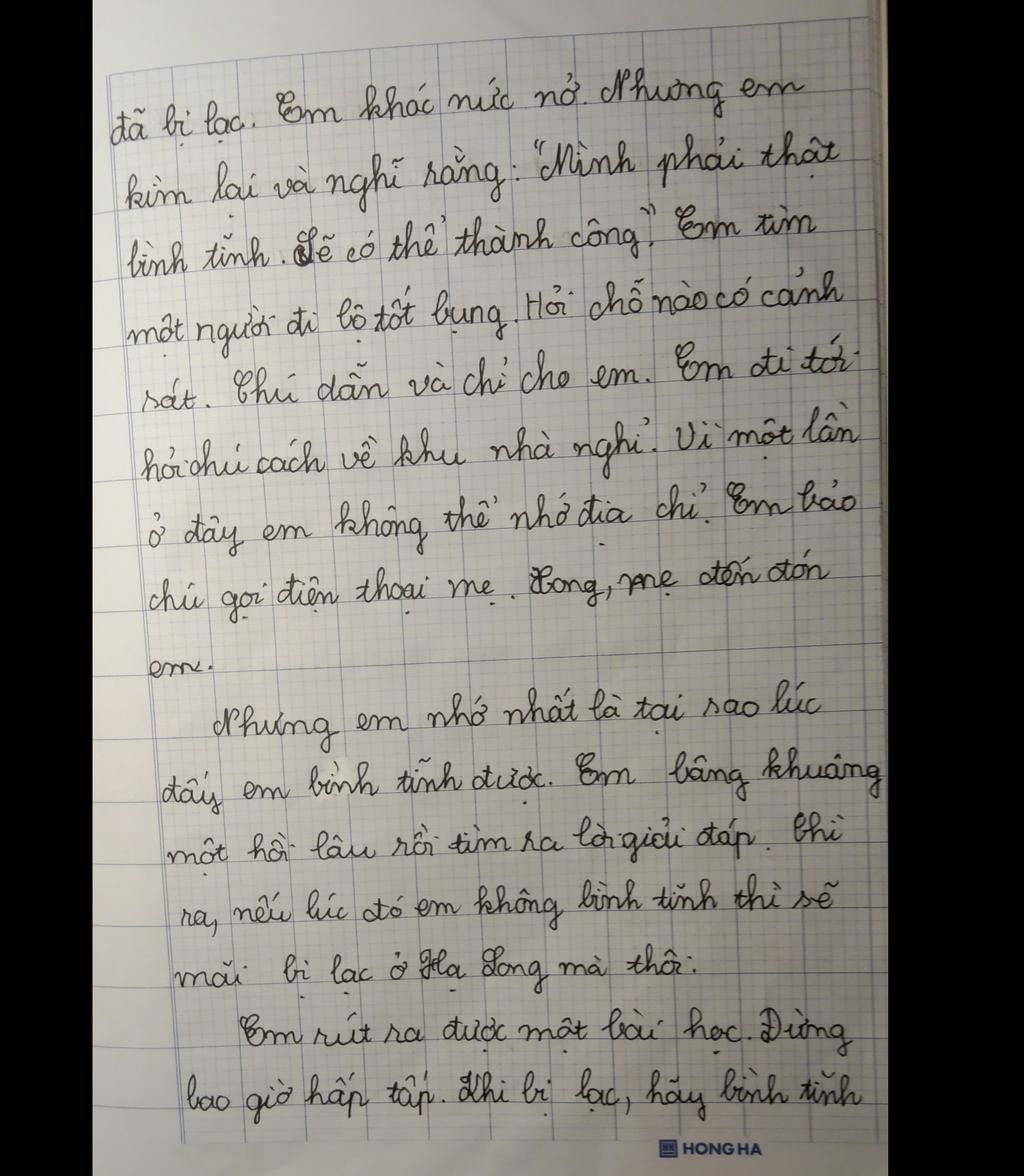 đã bị lạc. Em khóc nức nở. Nhưng em
kìm lại và nghĩ rằng: "Mình phải thật
bình tĩnh. Sẽ có thể thành công". Em tìm
một người đi bộ tốt bụng. Hỏi chỗ nào có cảnh
sát. Chú dẫn và chỉ cho em. Em đi tới
hỏi chú cách về khu nhà nghỉ. Vì một lần
ở đây em không thể nhớ địa chỉ. Em bảo
chú gọi điện thoại mẹ. Xong, mẹ đến đón
em.
Nhưng em nhớ nhất là tại sao lúc
đấy em bình tĩnh được. Em bâng khuâng
một hồi lâu rồi tìm ra lời giải đáp. Thì
ra, nếu lúc đó em không bình tĩnh thì sẽ
mãi bị lạc ở Hạ Long mà thôi.
Em rút ra được một bài học. Đừng
bao giờ hấp tấp. Khi bị lạc, hãy bình tĩnh
HONG HA